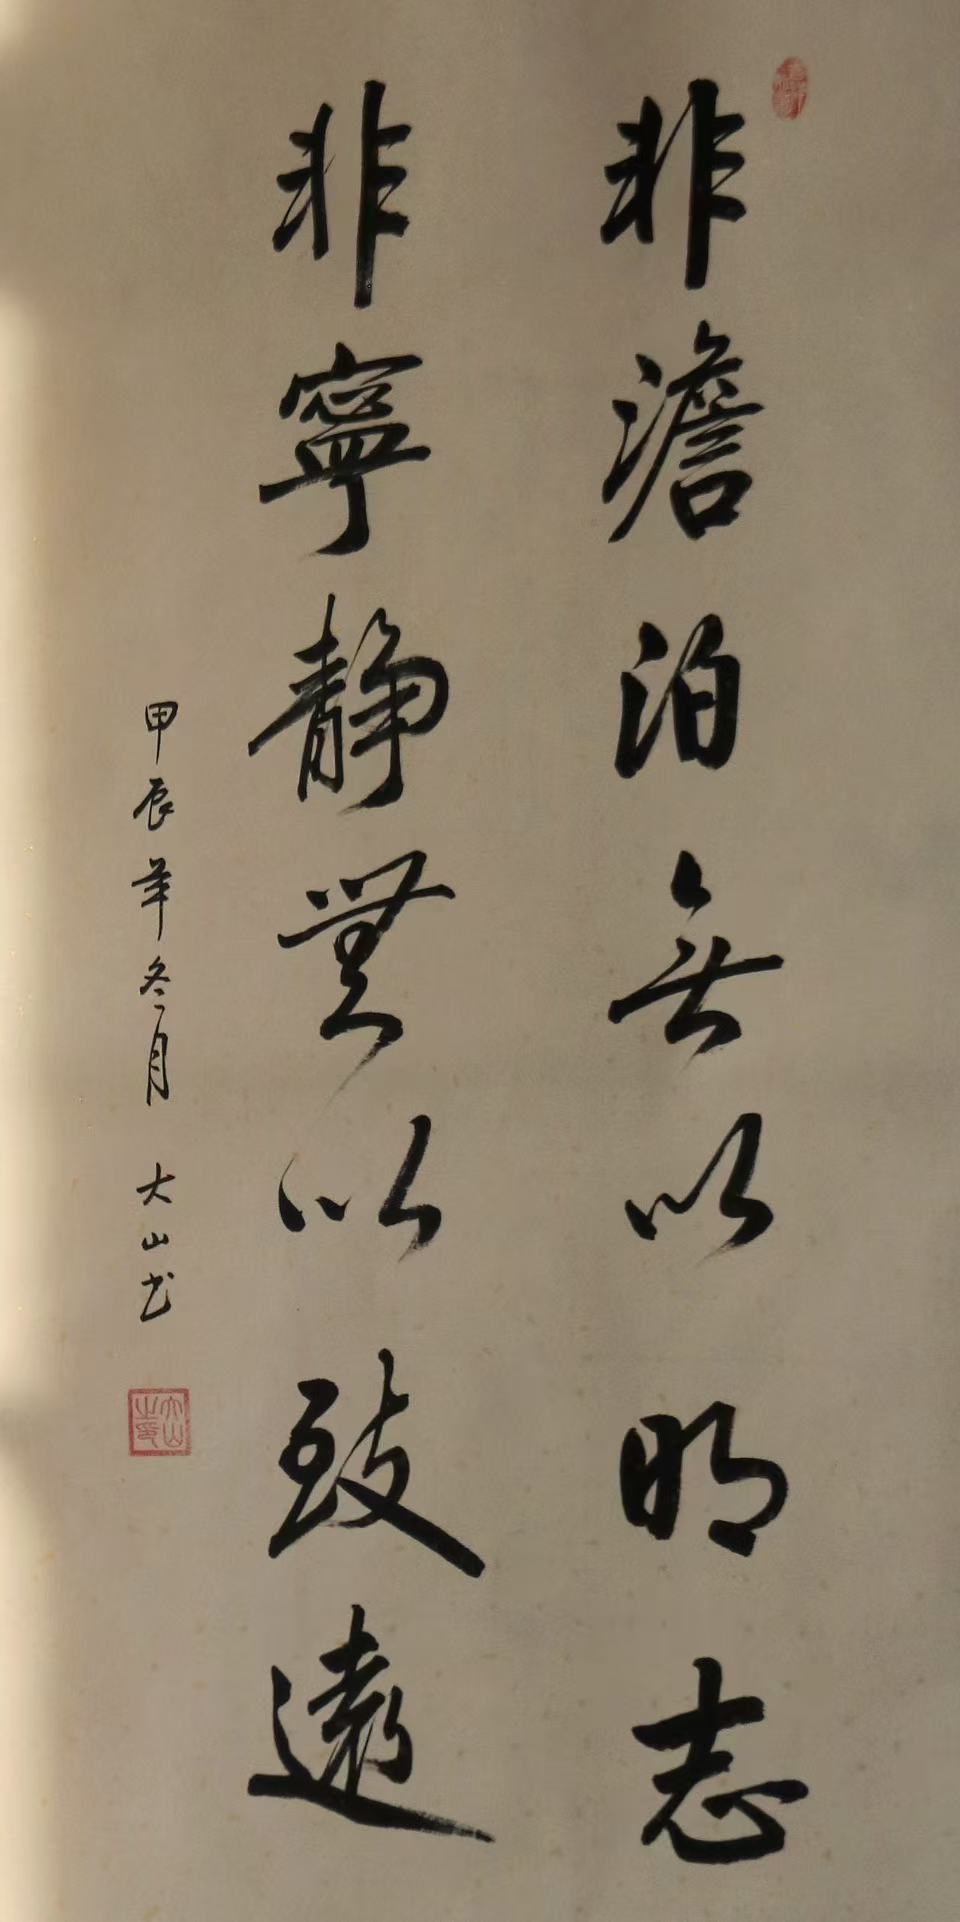 非澹泊无以明志
非寧靜無以致遠
甲辰年冬月 大山书
大山之印